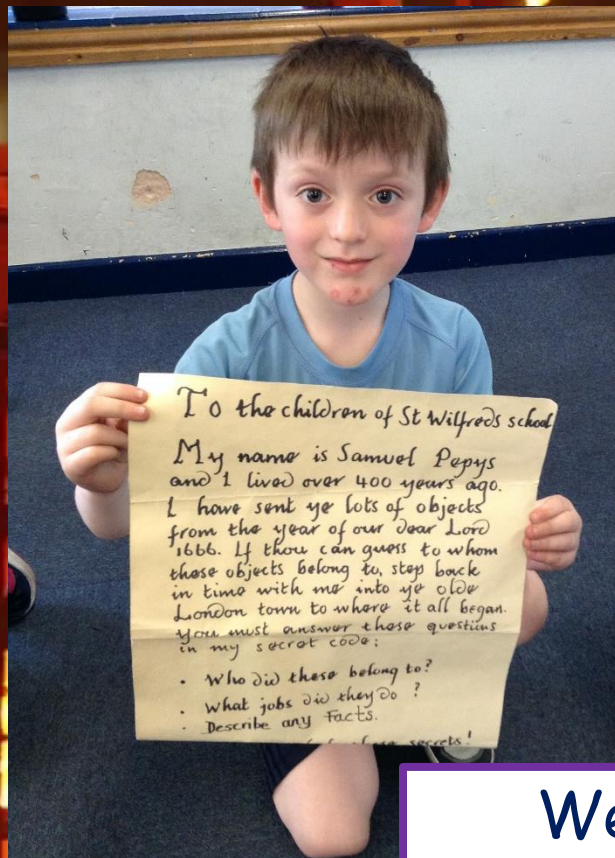 To the children of St Wilfreds school
My name is Samuel Pepys
and I lived over 400 years ago.
I have sent ye lots of objects
from the year of our dear Lord
1666. If thou can guess to whom
these objects belong to, step back
in time with me into ye olde
London town to where it all began.
You must answer these questions
in my secret code:
• Who did these belong to?
• What jobs did they do ?
• Describe any Facts.
secrets!
We